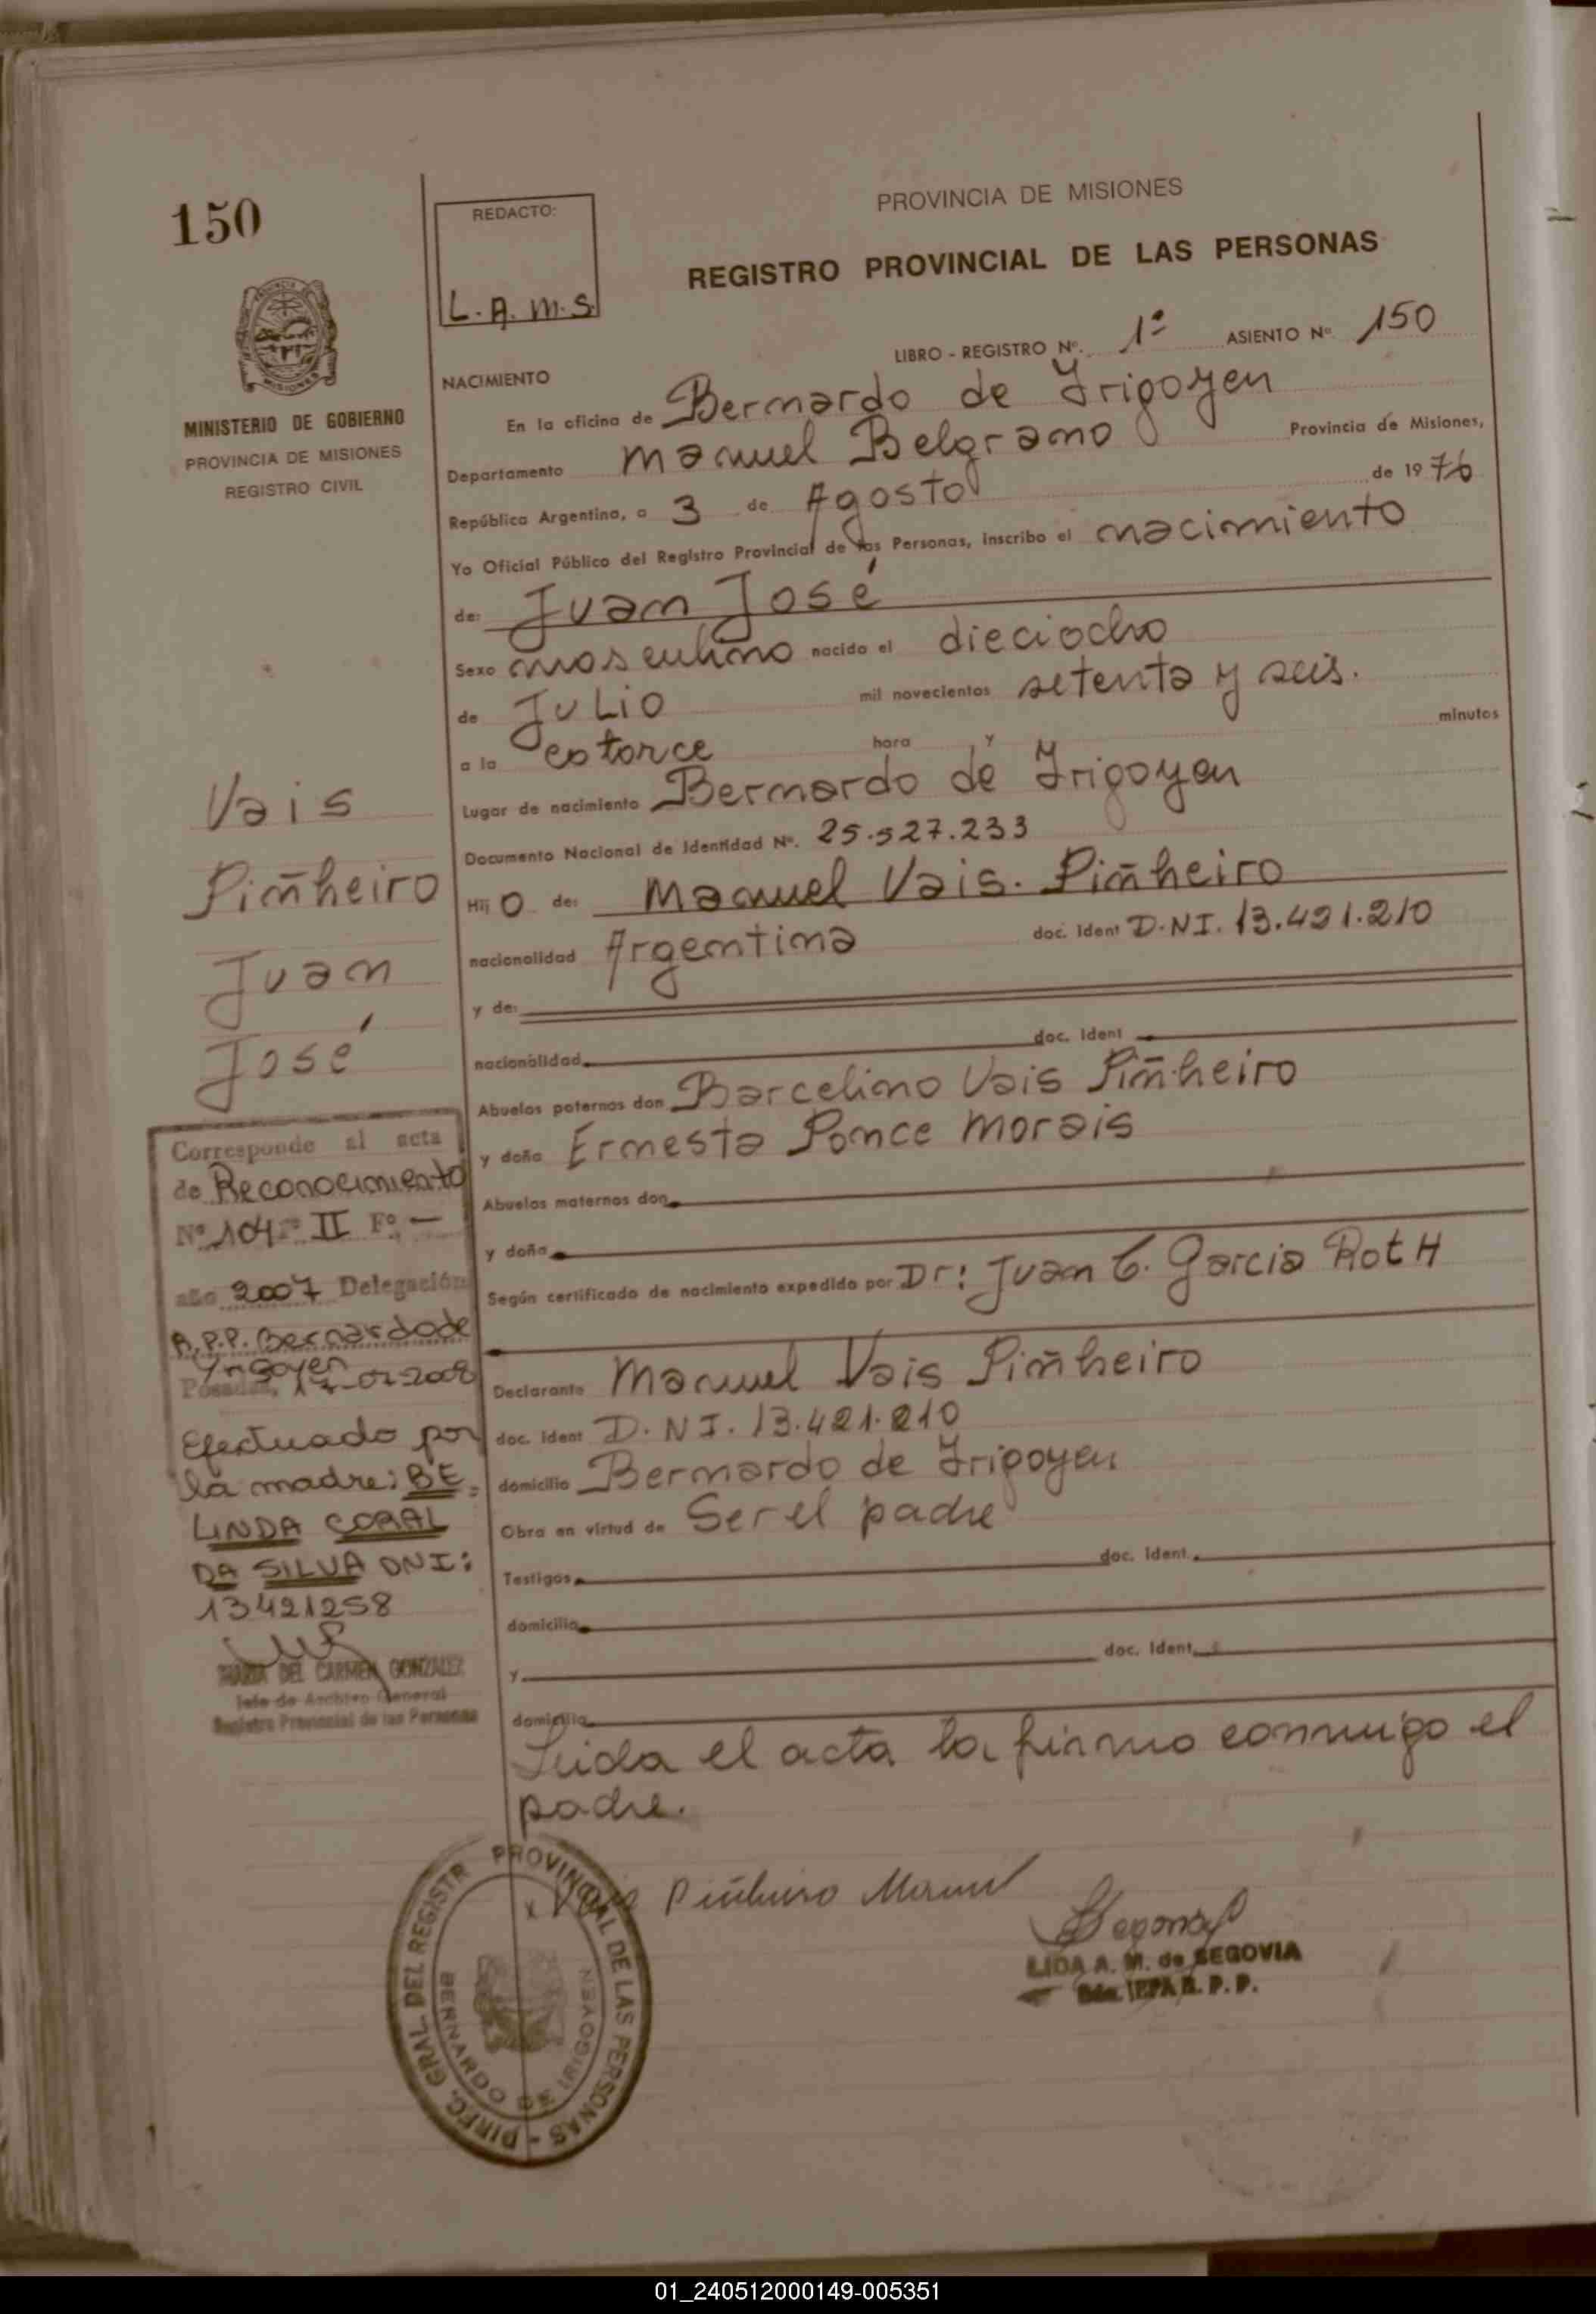 150
REDACTO:
L. A. M. S.
PROVINCIA DE MISIONES
REGISTRO PROVINCIAL DE LAS PERSONAS
LIBRO - REGISTRO Nº. 1º ASIENTO Nº 150
MINISTERIO DE GOBIERNO
PROVINCIA DE MISIONES
REGISTRO CIVIL
NACIMIENTO
En la oficina de Bernardo de Irigoyen
Departamento Manuel Belgrano Provincia de Misiones,
República Argentina, a 3 de Agosto de 1976
Yo Oficial Público del Registro Provincial de las Personas, inscribo el nacimiento
de: Juan José
Sexo masculino nacido el dieciocho
de Julio mil novecientos setenta y seis.
a la catorce hora y minutos
Lugar de nacimiento Bernardo de Irigoyen
Documento Nacional de Identidad Nº. 25.527.233
Hij o de: Manuel Vais. Piñheiro
nacionalidad Argentina doc. Ident D.N.I. 13.421.210
y de:
nacionalidad doc. Ident
Abuelos paternos don Barcelino Vais Piñheiro
y doña Ernesta Ponce Morais
Abuelos maternos don
y doña
Según certificado de nacimiento expedido por Dr: Juan C. Garcia RotH
Declarante Manuel Vais Piñheiro
doc. Ident D.N.I. 13.421.210
domicilio Bernardo de Irigoyen
Obra en virtud de Ser el padre
Testigos doc. Ident.
domicilio
y doc. Ident.
domicilio
Leida el acta la firma conmigo el
padre.
Vais
Piñheiro
Juan
José
Corresponde al acta
de Reconocimiento
Nº 104 Tº II Fº —
año 2007 Delegación
R.P.P. Bernardo de
Yrigoyen
Posadas, 2008
Efectuado por
la madre: BE=
LINDA CORAL
DA SILVA DNI:
13421258
MARIA DEL CARMEN GONZALEZ
Jefe de Archivo General
Registro Provincial de las Personas
x Vais Piñheiro Manuel
LIDA A. M. de SEGOVIA
DIREC. GRAL. DEL REGISTR PROVINCIAL DE LAS PERSONAS -
BERNARDO DE IRIGOYEN
01_240512000149-005351